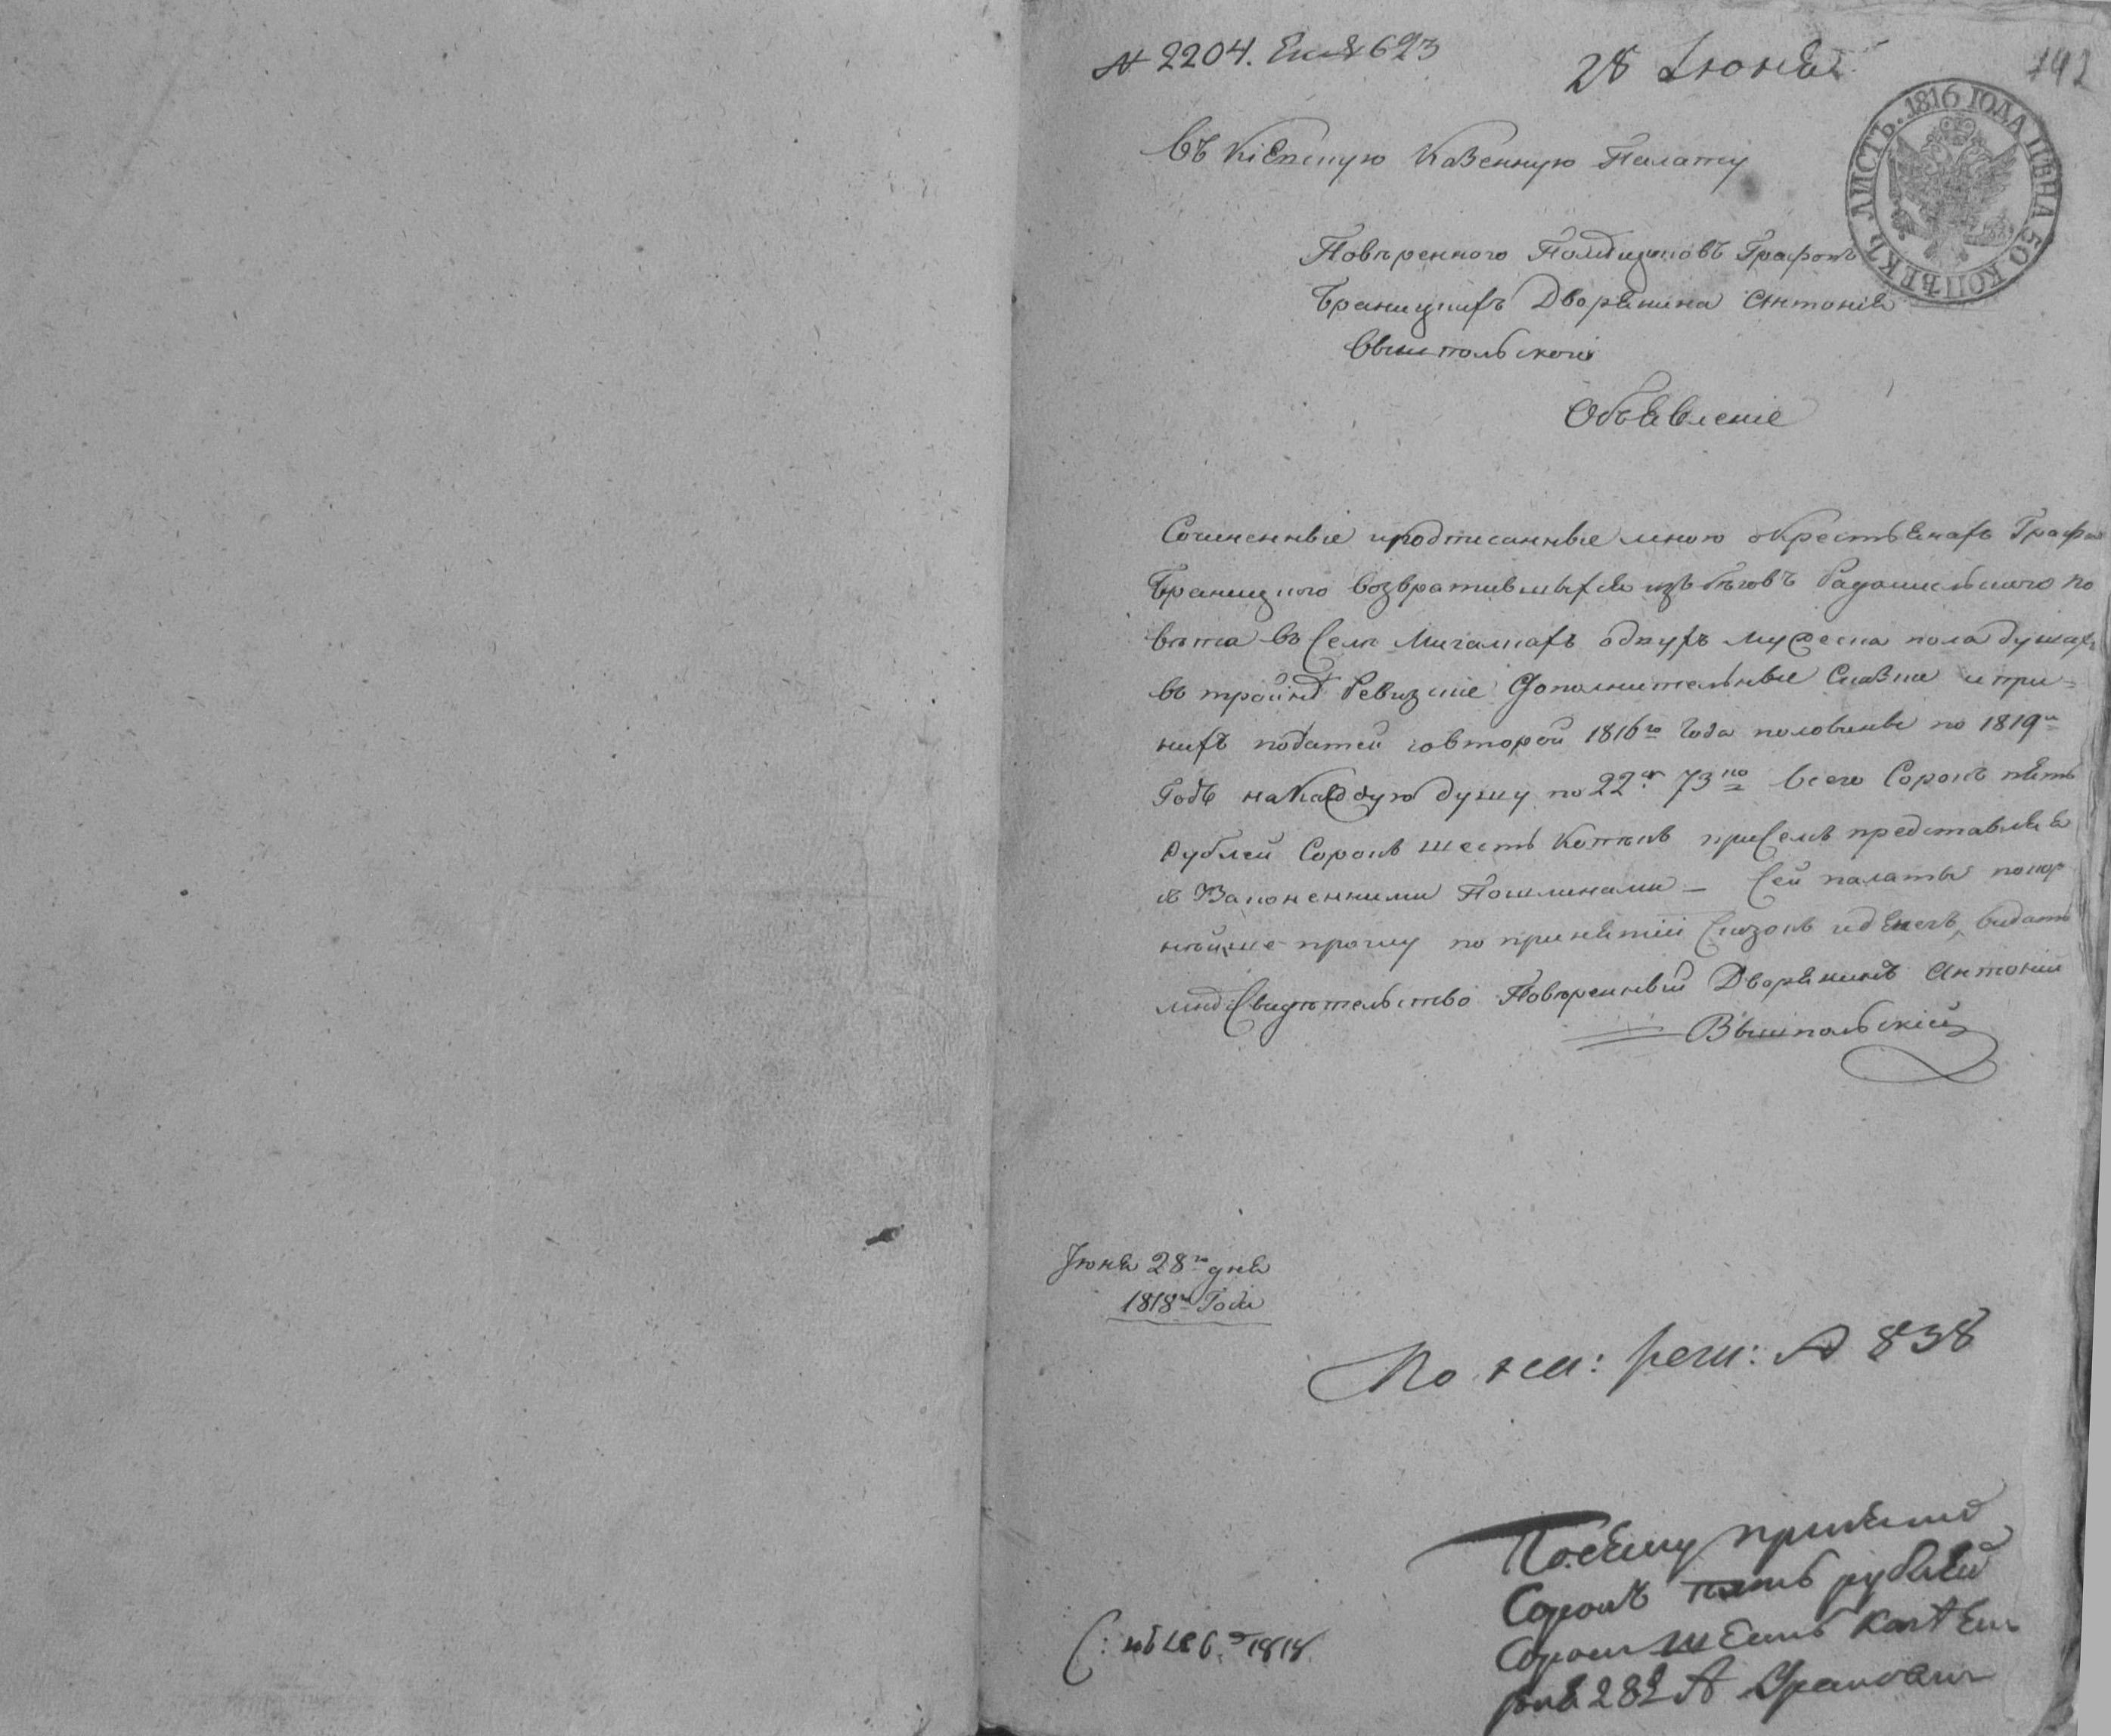 № 2204. 623
28 Июня
142
ЛИСТЪ. 1816 ГОДА ЦѢНА 50 КОПѢЕКЪ
Въ Кіевскую Казенную Палату
Повѣренного Помѣщиковъ Графовъ
Браницкихъ Дворянина Антонія
Вышпольского
Объявленіе
Сочиненные и подписанные мною о крестьянахъ Графа
Браницкого возвратившихся изъ бѣговъ Радомысльского по
вѣта въ селѣ Мигалкахъ двухъ мужеска пола душахъ
въ тройнѣ Ревизкіе Дополнительные Сказки и при=
нихъ податей со второй 1816го Года половины по 1819й
Годъ на каждую душу по 22 р 73 ко всего Сорокъ пять
Рублей Сорокъ шесть Копѣкъ при семъ представляя
съ Законенними Пошлинами — Сей палаты покор
нѣйше прошу по принятіи Сказокъ и денегъ, видать
мнѣ Свидѣтельство Повѣренный Дворянинъ Антоній
Вышпольскій
Іюня 28го дня
1818го Года
По рег: № 838
По сему принялъ
Сорокъ пять рублей
Сорокъ шесть копѣекъ
1818